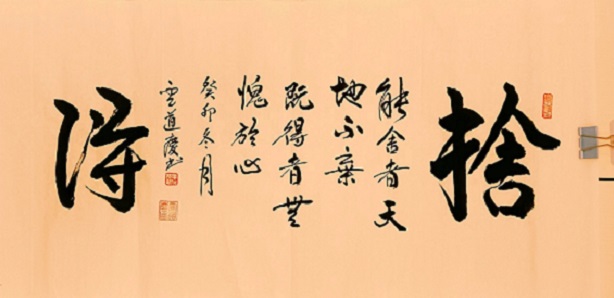 捨
能舍者天
地不棄
既得者無
愧於心
癸卯冬月
雲道慶书
得